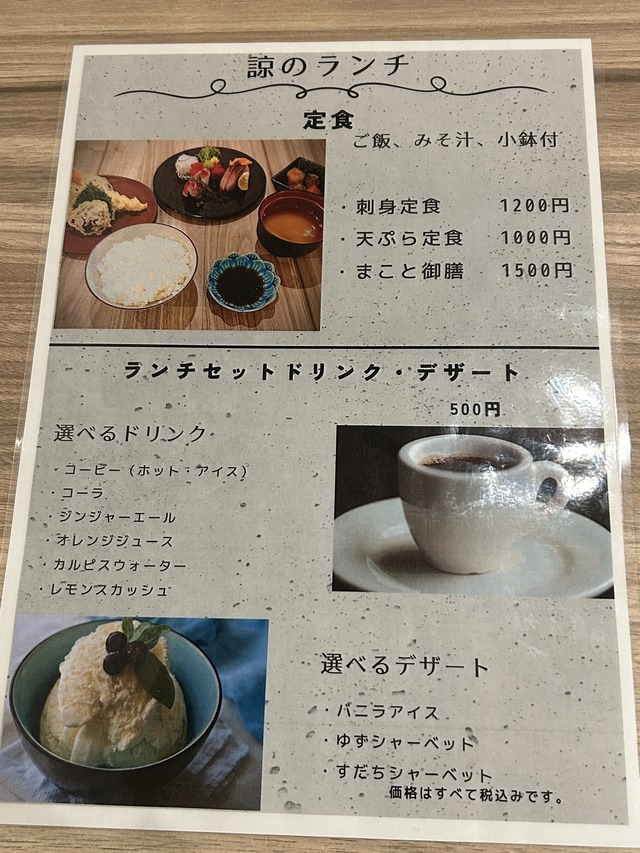 諒のランチ
定食
ご飯、みそ汁、小鉢付
・刺身定食 1200円
・天ぷら定食 1000円
・まこと御膳 1500円
ランチセットドリンク・デザート
500円
選べるドリンク
・コーヒー（ホット・アイス）
・コーラ
・ジンジャーエール
・オレンジジュース
・カルピスウォーター
・レモンスカッシュ
選べるデザート
・バニラアイス
・ゆずシャーベット
・すだちシャーベット
価格はすべて税込みです。